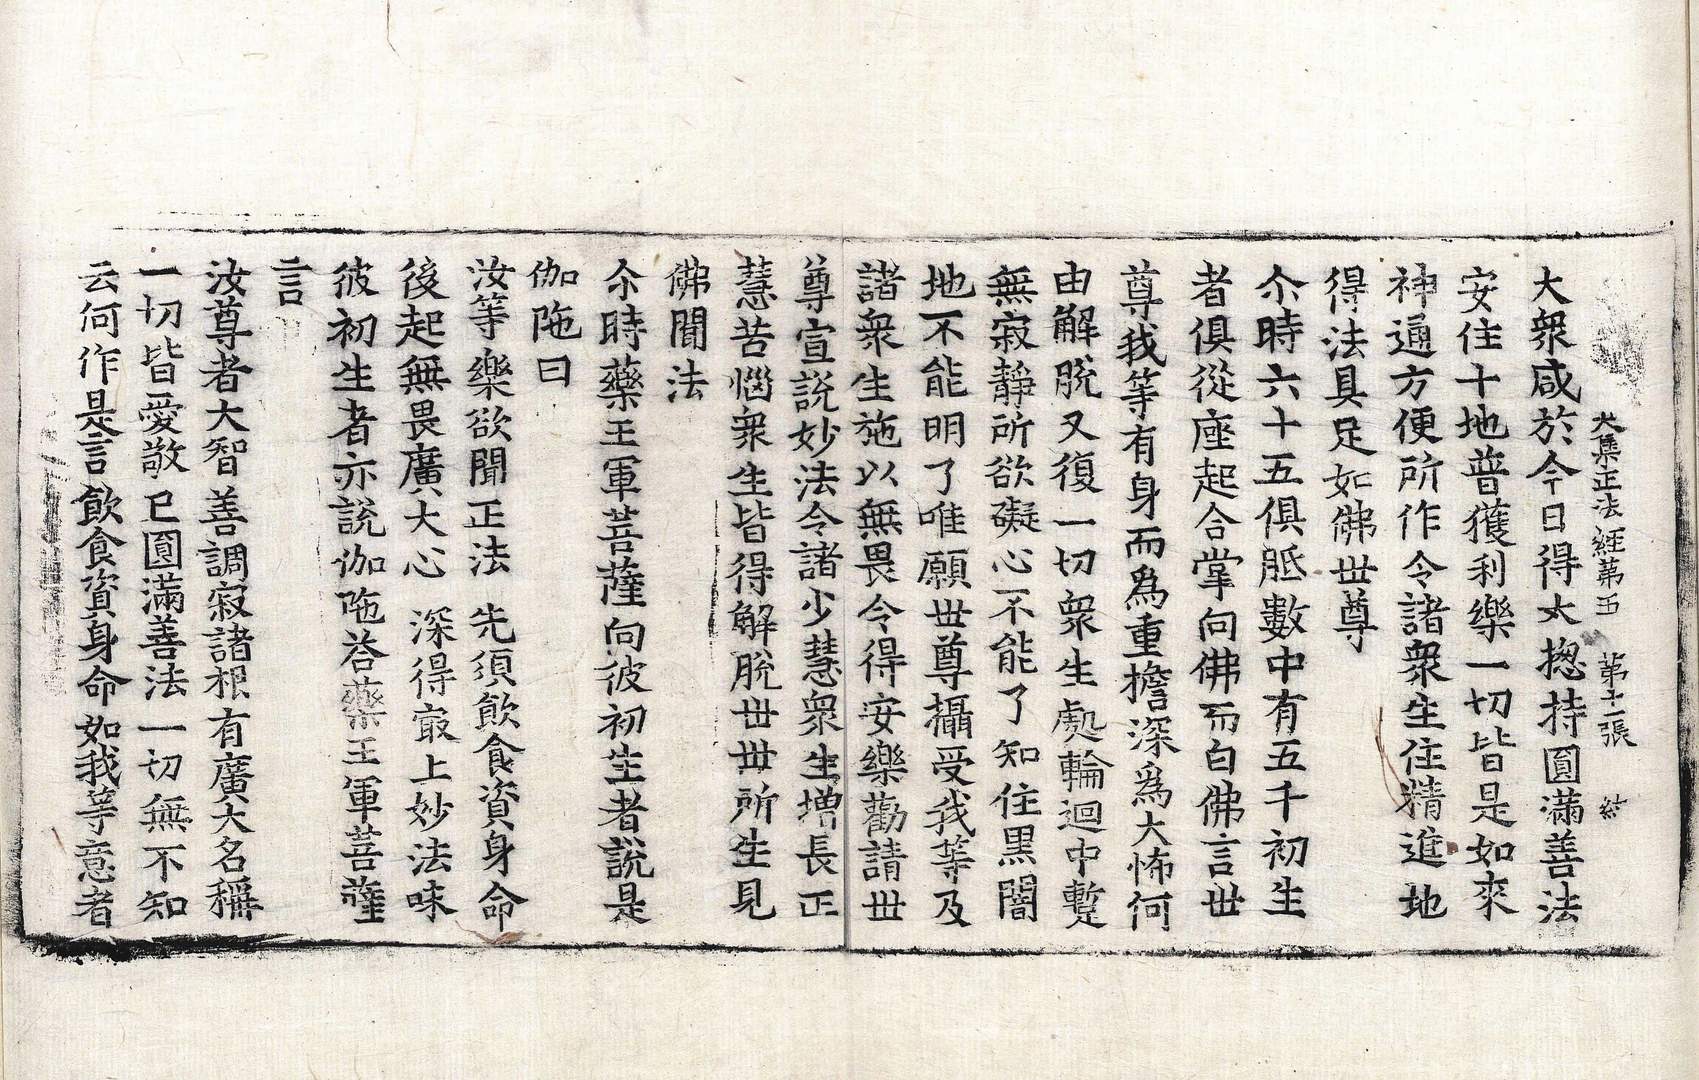 大集正法經第五　第十一張　結
大衆咸於今日得大揔持圓滿善法
安住十地普獲利樂一切皆是如來
神通方便所作令諸衆生住精進地
得法具足如佛世尊
尒時六十五俱胝數中有五千初生
者俱從座起合掌向佛而白佛言世
尊我等有身而爲重擔深爲大怖何
由解脫又復一切衆生處輪迴中蹔
無寂靜所欲礙心不能了知住黑闇
地不能明了唯願世尊攝受我等及
諸衆生施以無畏令得安樂勸請世
尊宣說妙法令諸少慧衆生增長正
慧苦惱衆生皆得解脫世世所生見
佛聞法
尒時藥王軍菩薩向彼初生者說是
伽陁曰
汝等樂欲聞正法　先須飮食資身命
後起無畏廣大心　深得㝡上妙法味
彼初生者亦說伽陁荅藥王軍菩薩
言
汝尊者大智善調寂諸根有廣大名稱
一切皆愛敬已圓滿善法一切無不知
云何作是言飮食資身命如我等意者